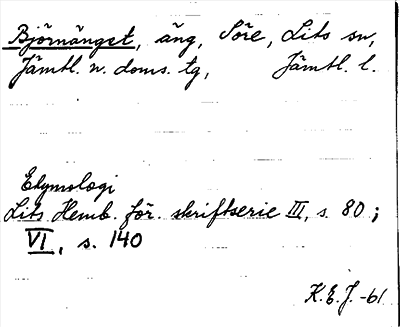 Björnänget, äng, Söre, Lits sn,
Jämtl. n. doms. tg, Jämtl. l.
Etymologi
Lits Hemb. för. skriftserie III, s. 80;
VI, s. 140
K.E.J. -61